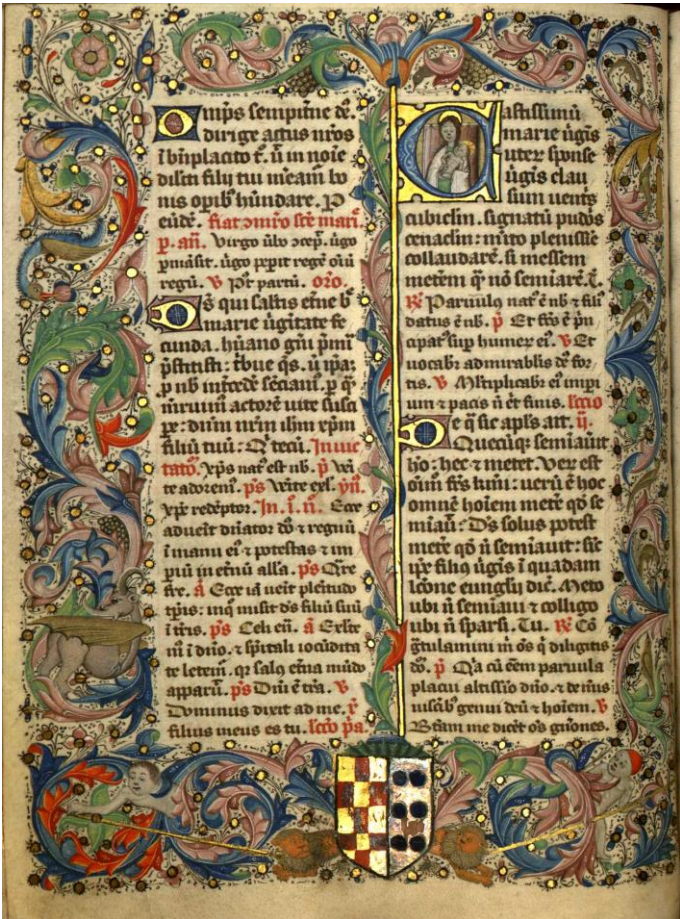 Omps sempitne de.
dirige actus nros
i bnplacito t. ut in noie
dilcti filij tui meam bo
nis opib hundare. P
eude. fiat omro sce mari.
p. an. Virgo ubo ocep. ugo
pmasit. ugo pepit rege oiu
regu. v Pt partu. oro.
Ds qui saltis etne b
marie ugitate fe
cunda. huano gni pmi
pstitisti: tbue qs. ut ipa
p nb intcede seciam. p q
mruim actore vite susci
pe: dnm nrm ihm xpm
filiu tuu: Q tecu. Inuic
tato. xps nat est nb. p ve
te adorem. ps Vite exl. yn.
xpe redeptor. In. i. n. Ecce
adueit dnator do & regnu
i manu ei & potestas & im
piu in etnu alla. ps Qre
fre. a Ecce ia ueit plenitudo
tpis: inq misit ds filiu suu
i tris. ps Celi en. a Exlte
m i dno. & spitali iocudita
te letem. qr salq etna mudo
apparu. ps Dni e tra. v
Dominus dixit ad me. r
filius meus es tu. lcco pa.
Castissimu
marie ugis
uter sponse
ugis clau
sum uentis
cubiclm. signatu pudos
cenaclm: mto plenisse
collaudare. si messem
metem q no semiare. t.
R Paruulq nat e nb & fili
datus e nb. p Et fcs e pn
cipat sup humer ei. v Et
uocab admirablis ds for
tis. v Mltiplicab ei impi
um & pacis n et finis. lccio
De q sic apls ait. ij.
Quecuq semiauit
ho: hec & metet. Ver est
oim frs kmi: ueru e hoc
omne hoiem mete qd se
miau: Ds solus potest
mete qd n semiauit: sic
ipe filiq ugis i quadam
lcone eunglij dic. Meto
ubi n semiaui & colligo
ubi n sparsi. Tu. R Co
gtulamini m os q diligitis
do. p Qa cu eem paruula
placui altissio dno. & de mis
uisceb genui deu & hoiem. v
Btam me dicet os gnones.